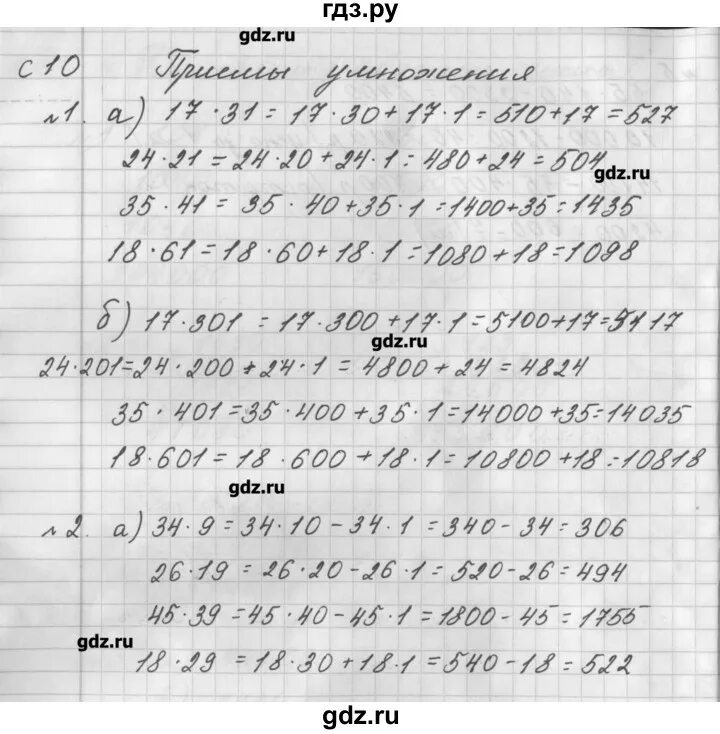 гдз.ру
gdz.ru
с 10 Приемы умножения
№1. а) 17·31 = 17·30+17·1 = 510+17 = 527
24·21 = 24·20+24·1 = 480+24 = 504
gdz.ru
35·41 = 35·40+35·1 = 1400+35 = 1435
18·61 = 18·60+18·1 = 1080+18 = 1098
б) 17·301 = 17·300+17·1 = 5100+17 = 5117
gdz.ru
24·201 = 24·200+24·1 = 4800+24 = 4824
35·401 = 35·400+35·1 = 14000+35 = 14035
18·601 = 18·600+18·1 = 10800+18 = 10818
gdz.ru
№2. а) 34·9 = 34·10-34·1 = 340-34 = 306
26·19 = 26·20-26·1 = 520-26 = 494
45·39 = 45·40-45·1 = 1800-45 = 1755
gdz.ru
18·29 = 18·30+18·1 = 540-18 = 522
gdz.ru